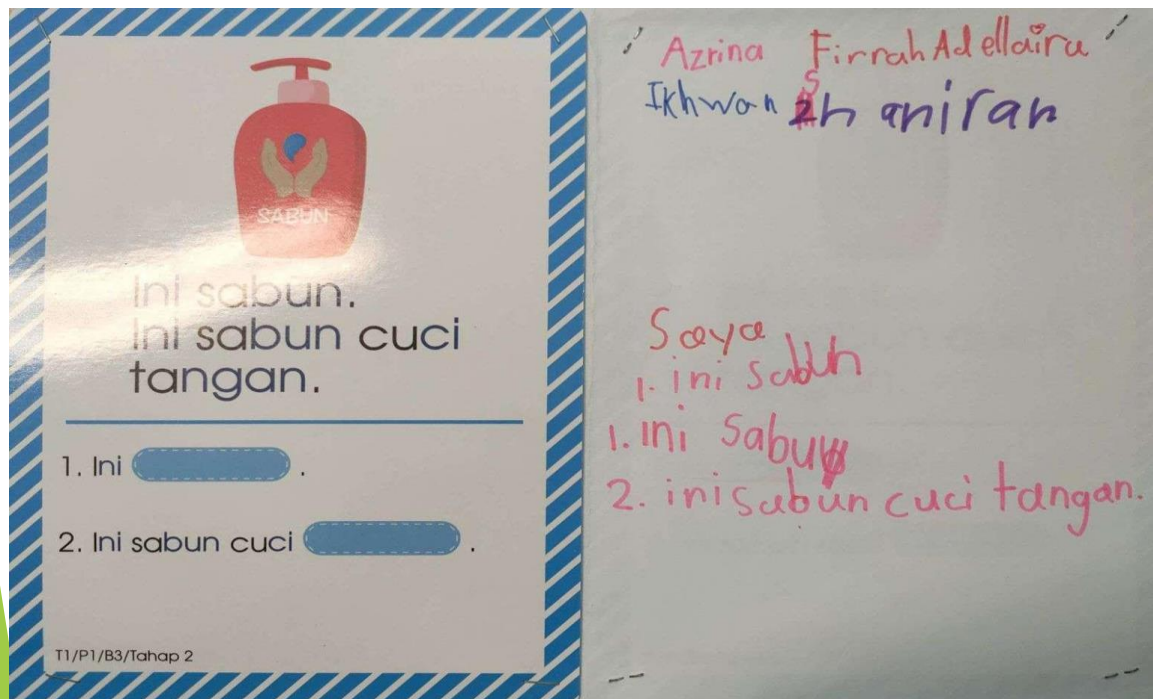 SABUN
Ini sabun.
Ini sabun cuci
tangan.
1. Ini .
2. Ini sabun cuci .
T1/P1/B3/Tahap 2
Azrina Firrah Adellaira
Ikhwan aniran
Saya
1. ini sabun
1. ini sabun
2. ini sabun cuci tangan.